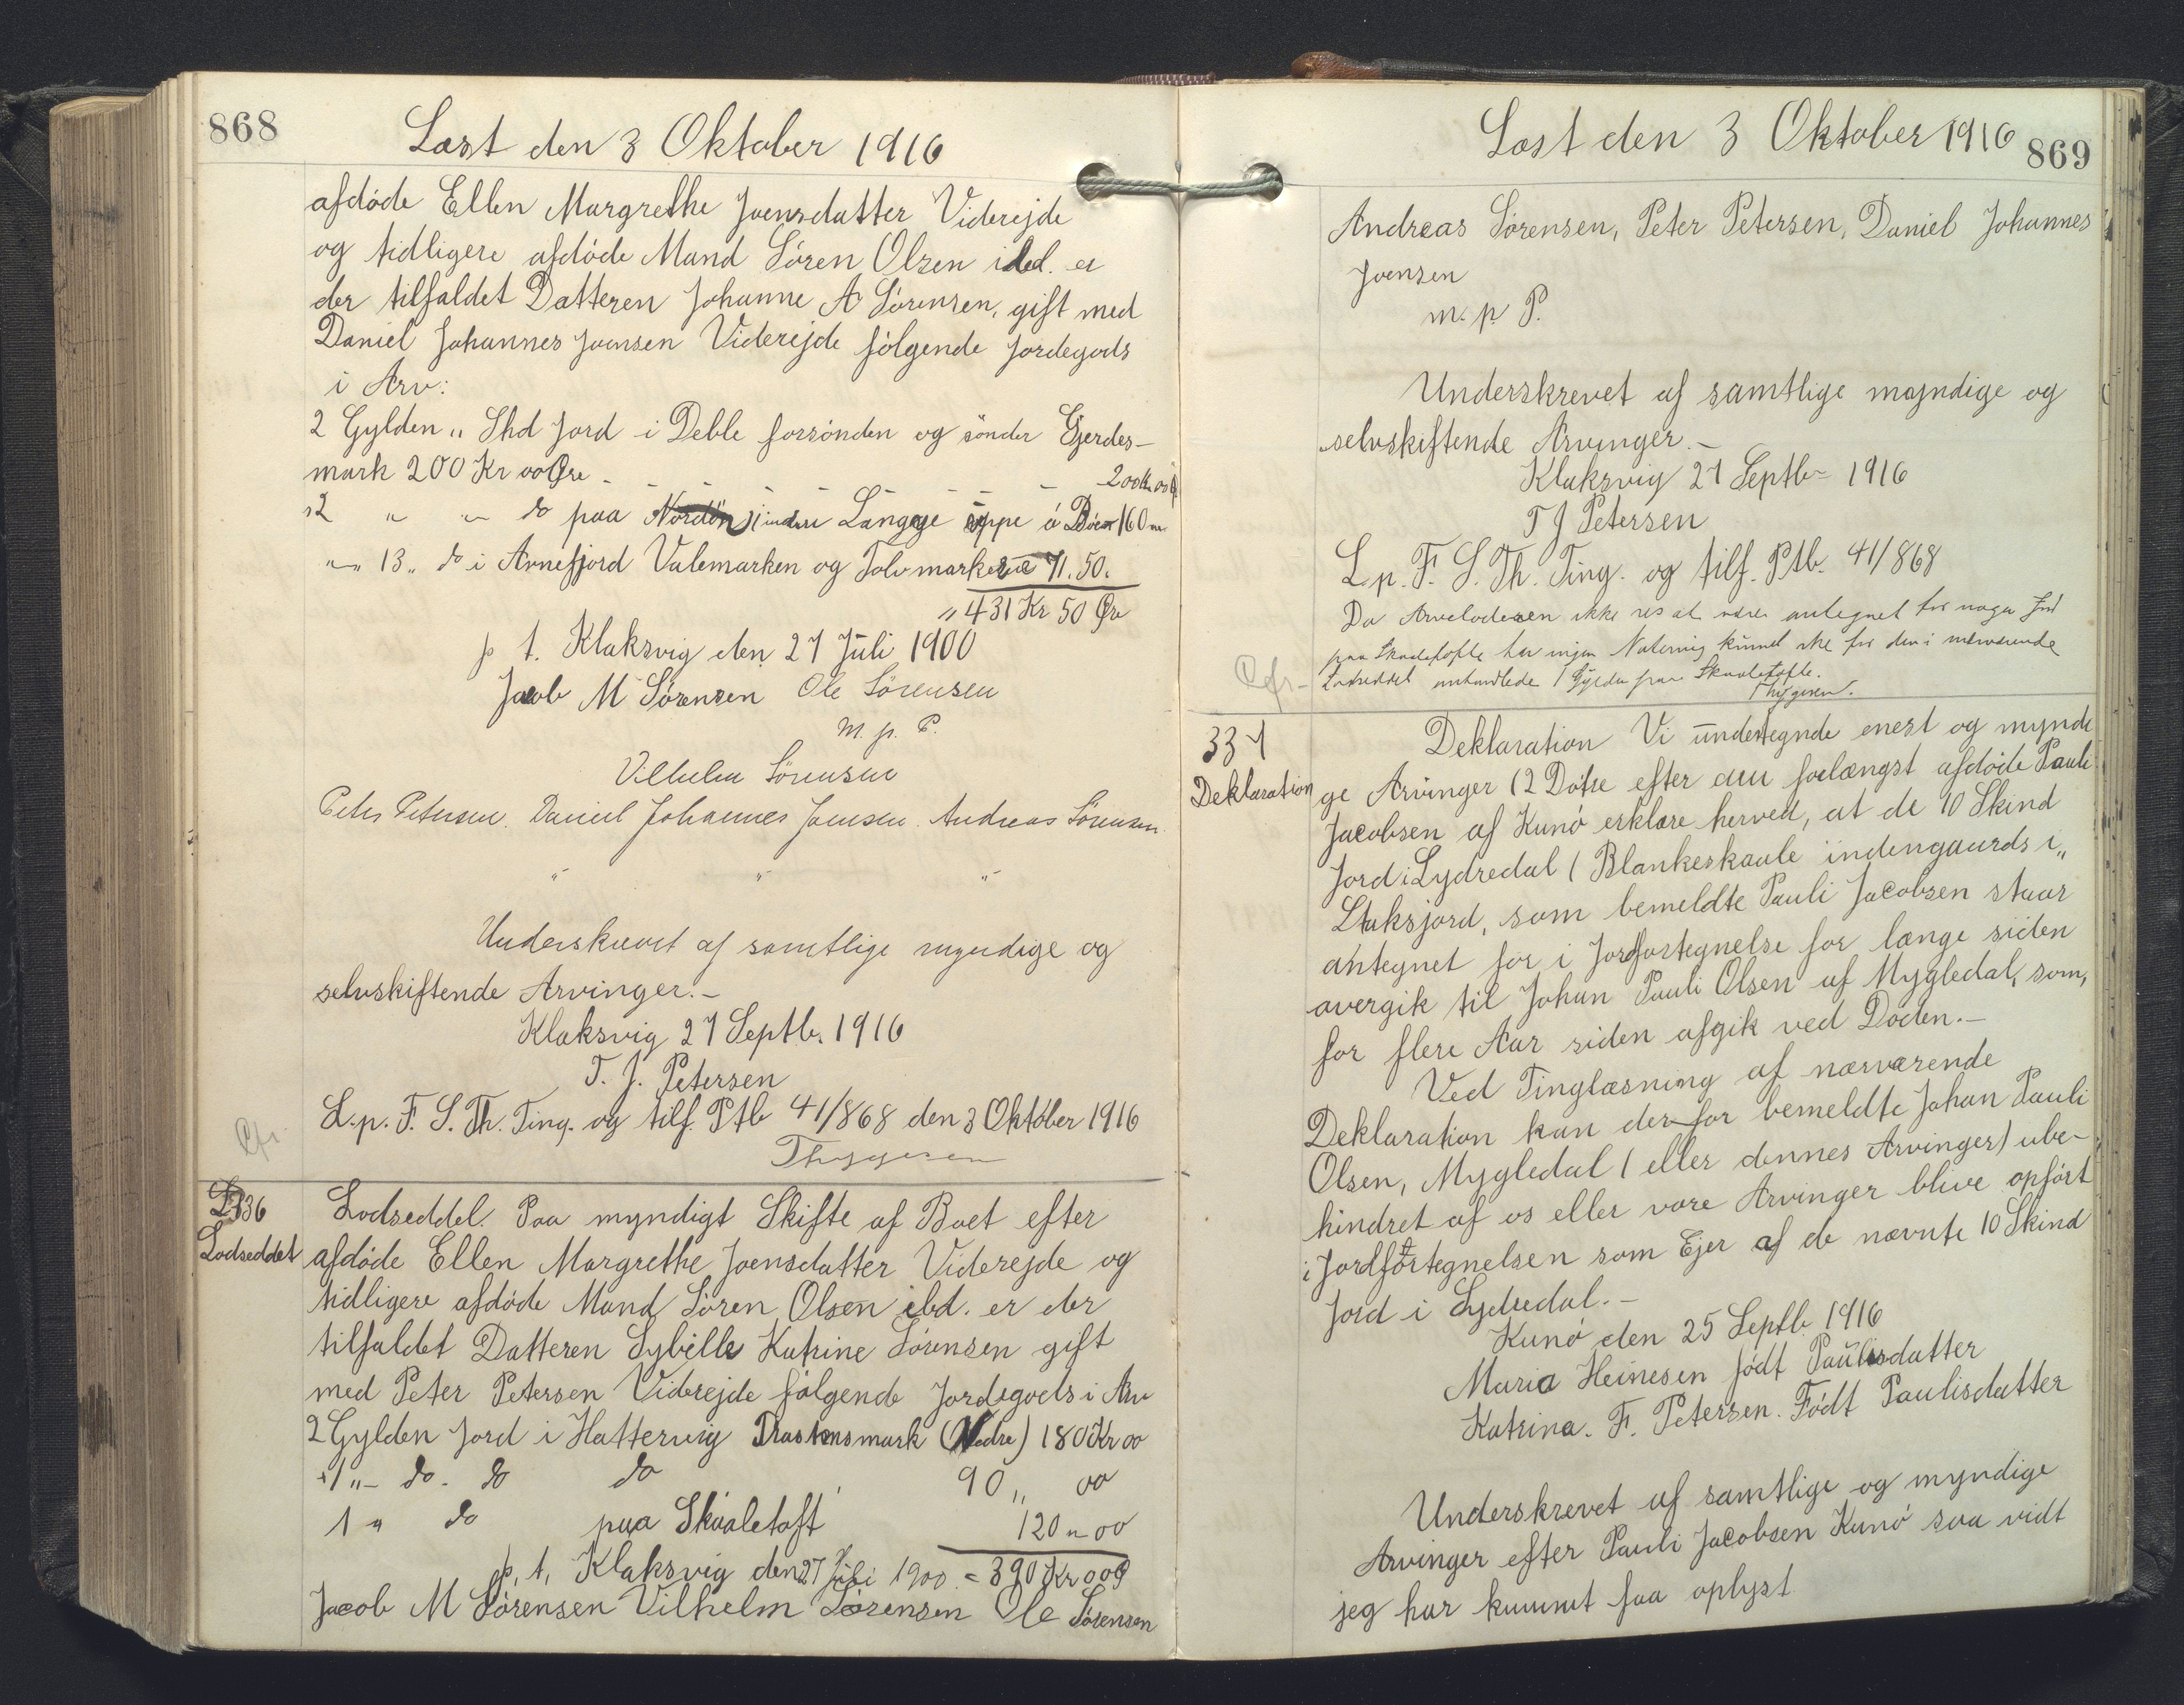 868
Læst den 3 Oktober 1916
afdöde Ellen Margrethe Joensdatter Viderejde
og tidligere afdöde Mand Sören Olsen ibd. er
der tilfaldet Datteren Johanne A Sörensen, gift med
Daniel Johannes Joensen Viderejde fölgende Jordegods
i Arv:
2 Gylden „ Skd Jord i Deble forsönden og sönder Gjerdes-
mark 200 Kr 00 Øre - - - - - - - 200 Kr 00 Ø
2 „ „ do paa indere Langøge 160 „
„ 13 „ do i Arnefjord Valemarken og Tolvmarkerne 71.50.
„ 431 Kr 50 Øre
p t. Klaksvig den 27 Juli 1900
Jacob M Sörensen Ole Sörensen
m. p. P.
Vilhelm Sörensen
Peter Petersen. Daniel Johannes Joensen. Andreas Sörensen.
„ „ „
Underskrevet af samtlige myndige og
selvskiftende Arvinger.-
Klaksvig 27 Septb. 1916
T. J. Petersen
L. p. F. S. Th. Ting. og tilf. Ptb 41/868 den 3 Oktober 1916
Cfr.
Thygesen
336
Lodseddel
Lodseddel. Paa myndigt Skifte af Boet efter
afdöde Ellen Margrethe Joensdatter Viderejde og
tidligere afdöde Mand Sören Olsen ibd. er der
tilfaldet Datteren Sybille Katrine Sörensen gift
med Peter Petersen Viderejde fölgende Jordegods i Arv
2 Gylden Jord i Hattervig Trastensmark (Nedre) 180 Kr 00
1 „ do. do do 90 „ 00
1 „ do paa Skaaletoft 120 „ 00
p. t. Klaksvig den 27 Juli 1900. = 390 Kr 00 Ø
Jacob M Sörensen Vilhelm Sörensen Ole Sörensen
Læst den 3 Oktober 1916
869
Andreas Sörensen, Peter Petersen, Daniel Johannes
Joensen
m. p. P.
Underskrevet af samtlige myndige og
selvskiftende Arvinger.-
Klaksvig 27 Septb- 1916
T J Petersen
L. p. F. S. Th. Ting. og tilf. Ptb. 41/868
Da Arveladeren ikke ses at være antegnet for nogen Jord
paa Skaaletofte har ingen Notering kunnet ske for den i nærværende
Cfr-
Lodseddel omhandlede 1 Gylden paa Skaaletofte.
Thygesen.
337
Deklaration
Deklaration Vi undertegnde enest og myndi
ge Arvinger (2 Dötre efter den forlængst afdöde Pauli
Jacobsen af Kunö erklære herved, at de 10 Skind
Jord i Lydredal (Blankeskaale indengaards i „
Staksjord, som bemeldte Pauli Jacobsen staar
antegnet for i Jordfortegnelse for længe siden
overgik til Johan Pauli Olsen af Mygledal, som,
for flere Aar siden afgik ved Döden.-
Ved Tinglæsning af nærværende
Deklaration kan derfor bemeldte Johan Pauli
Olsen, Mygledal (eller dennes Arvinger) ube-
hindret af os eller vore Arvinger blive opfört
i Jordfortegnelsen som Ejer af de nævnte 10 Skind
Jord i Lydredal.-
Kunö den 25 Septb. 1916
Maria Heinesen födt Paulisdatter
Katrina. F. Petersen. Födt Paulisdatter
Underskrevet af samtlige og myndige
Arvinger efter Pauli Jacobsen Kunö saa vidt
jeg har kunnet faa oplyst